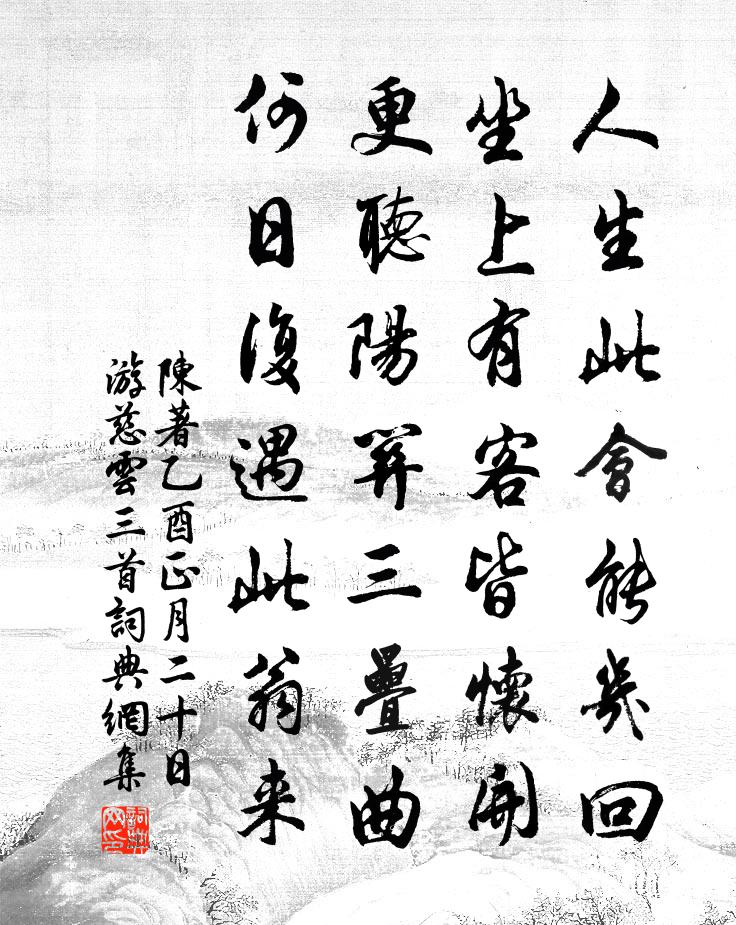 人生此會能幾回
坐上有客皆懷開
更聽陽關三疊曲
何日復遇此翁来
陳著乙酉正月二十日
游慈雲三首詞典網集
詞典网印